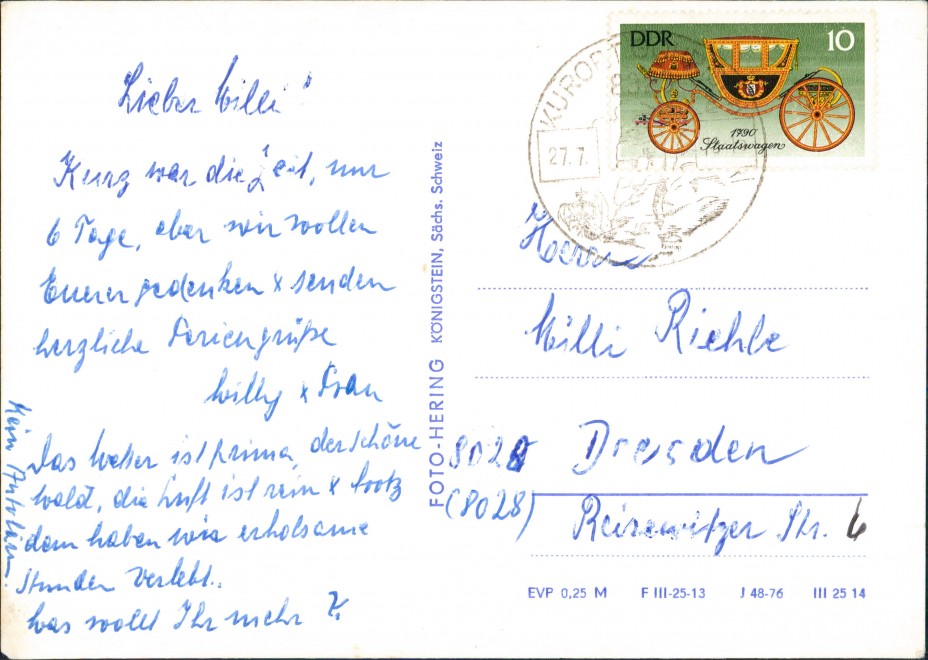 Lieber Willi!
Kurz war die Zeit, nur
6 Tage, aber wir wollen
Eurer gedenken & senden
herzliche Feriengrüße
Willy & Frau
Das Wetter ist prima, der schöne
Wald, die Luft ist rein & trotz
dem haben wir erholsame
Stunden verlebt.
Was wollt Ihr mehr ?
Kein Autolärm
FOTO-HERING KÖNIGSTEIN, Sächs. Schweiz
DDR 10
1790
Staatswagen
KURORT
27.7.
Herrn
Willi Riehle
8028 Dresden
(8028)
Reisewitzer Str. 6
EVP 0,25 M F III-25-13 J 48-76 III 25 14